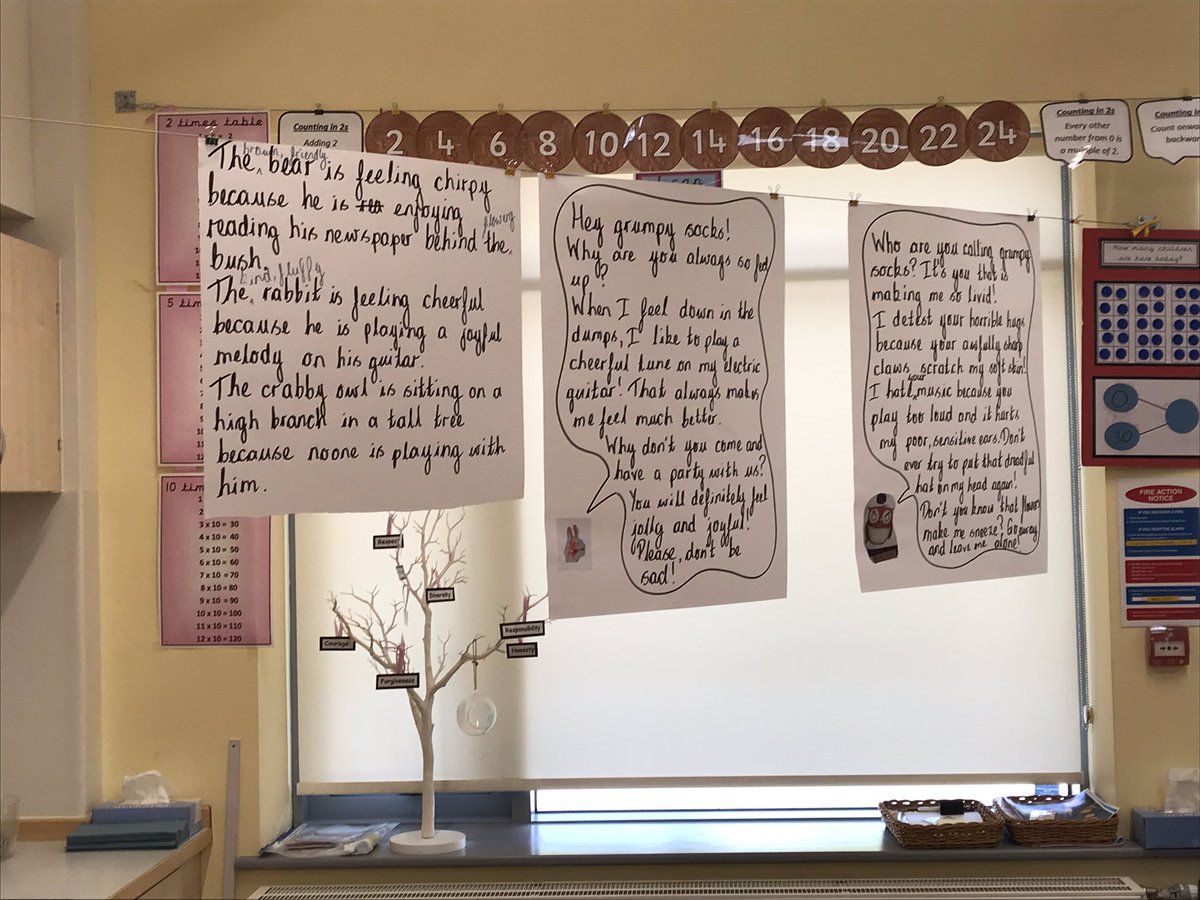 2 times table
Counting in 2s
Adding 2
2 4 6 8 10 12 14 16 18 20 22 24
Counting in 2s
Every other
number from 0 is
a multiple of 2.
Counting in
backwar
brown, friendly
The, bear is feeling chirpy
because he is enjoying
flowery
reading his newspaper behind the,
bush.
kind, fluffy
The, rabbit is feeling cheerful
because he is playing a joyful
melody on his guitar.
The crabby owl is sitting on a
high branch in a tall tree
because noone is playing with
him.
Hey grumpy socks!
Why are you always so fed
up?
When I feel down in the
dumps, I like to play a
cheerful tune on my electric
guitar! That always makes
me feel much better.
Why don't you come and
have a party with us?
You will definitely feel
jolly and joyful!
Please, don't be
sad!
Who are you calling grumpy
socks? It's you that is
making me so livid!
I detest your horrible hugs
because your awfully sharp
claws scratch my soft skin!
I hate your music because you
play too loud and it hurts
my poor, sensitive ears. Don't
ever try to put that dreadful
hat on my head again!
Don't you know that flowers
make me sneeze? Go away
and leave me alone!
How many children
are here today?
0
30
FIRE ACTION
NOTICE
5 tim
10 tim
3 x 10 = 30
4 x 10 = 40
5 x 10 = 50
6 x 10 = 60
7 x 10 = 70
8 x 10 = 80
9 x 10 = 90
10 x 10 = 100
11 x 10 = 110
12 x 10 = 120
Respect
Diversity
Courage
Responsibility
Honesty
Forgiveness